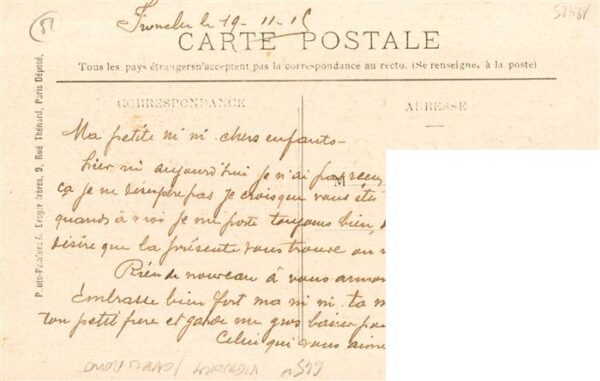 51
le 19-11-15
CARTE POSTALE
Tous les pays étrangers n'acceptent pas la correspondance au recto. (Se renseigner à la poste)
CORRESPONDANCE
ADRESSE
M
Ma petite ni ni chers enfants-
hier ni aujourd'hui je n'ai pas reçu
ça je ne désespère pas je crois que vous ête
quands à moi je me porte toujours bien,
désire que la présente vous trouve au
Rien de nouveau à vous
Embrasse bien fort ma ni ni ta
ton petit frere et garde me gros baiser
Celui qui vous aime
9, Rue Thénard, Paris Déposé,